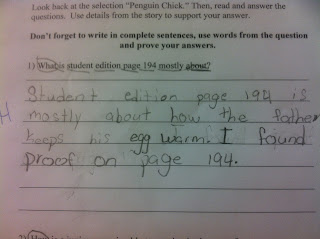 Look back at the selection "Penguin Chick." Then, read and answer the
questions. Use details from the story to support your answer.
Don't forget to write in complete sentences, use words from the question
and prove your answers.
1) What is student edition page 194 mostly about?
Student edition page 194 is
mostly about how the father
keeps his egg warm. I found
proof on page 194.